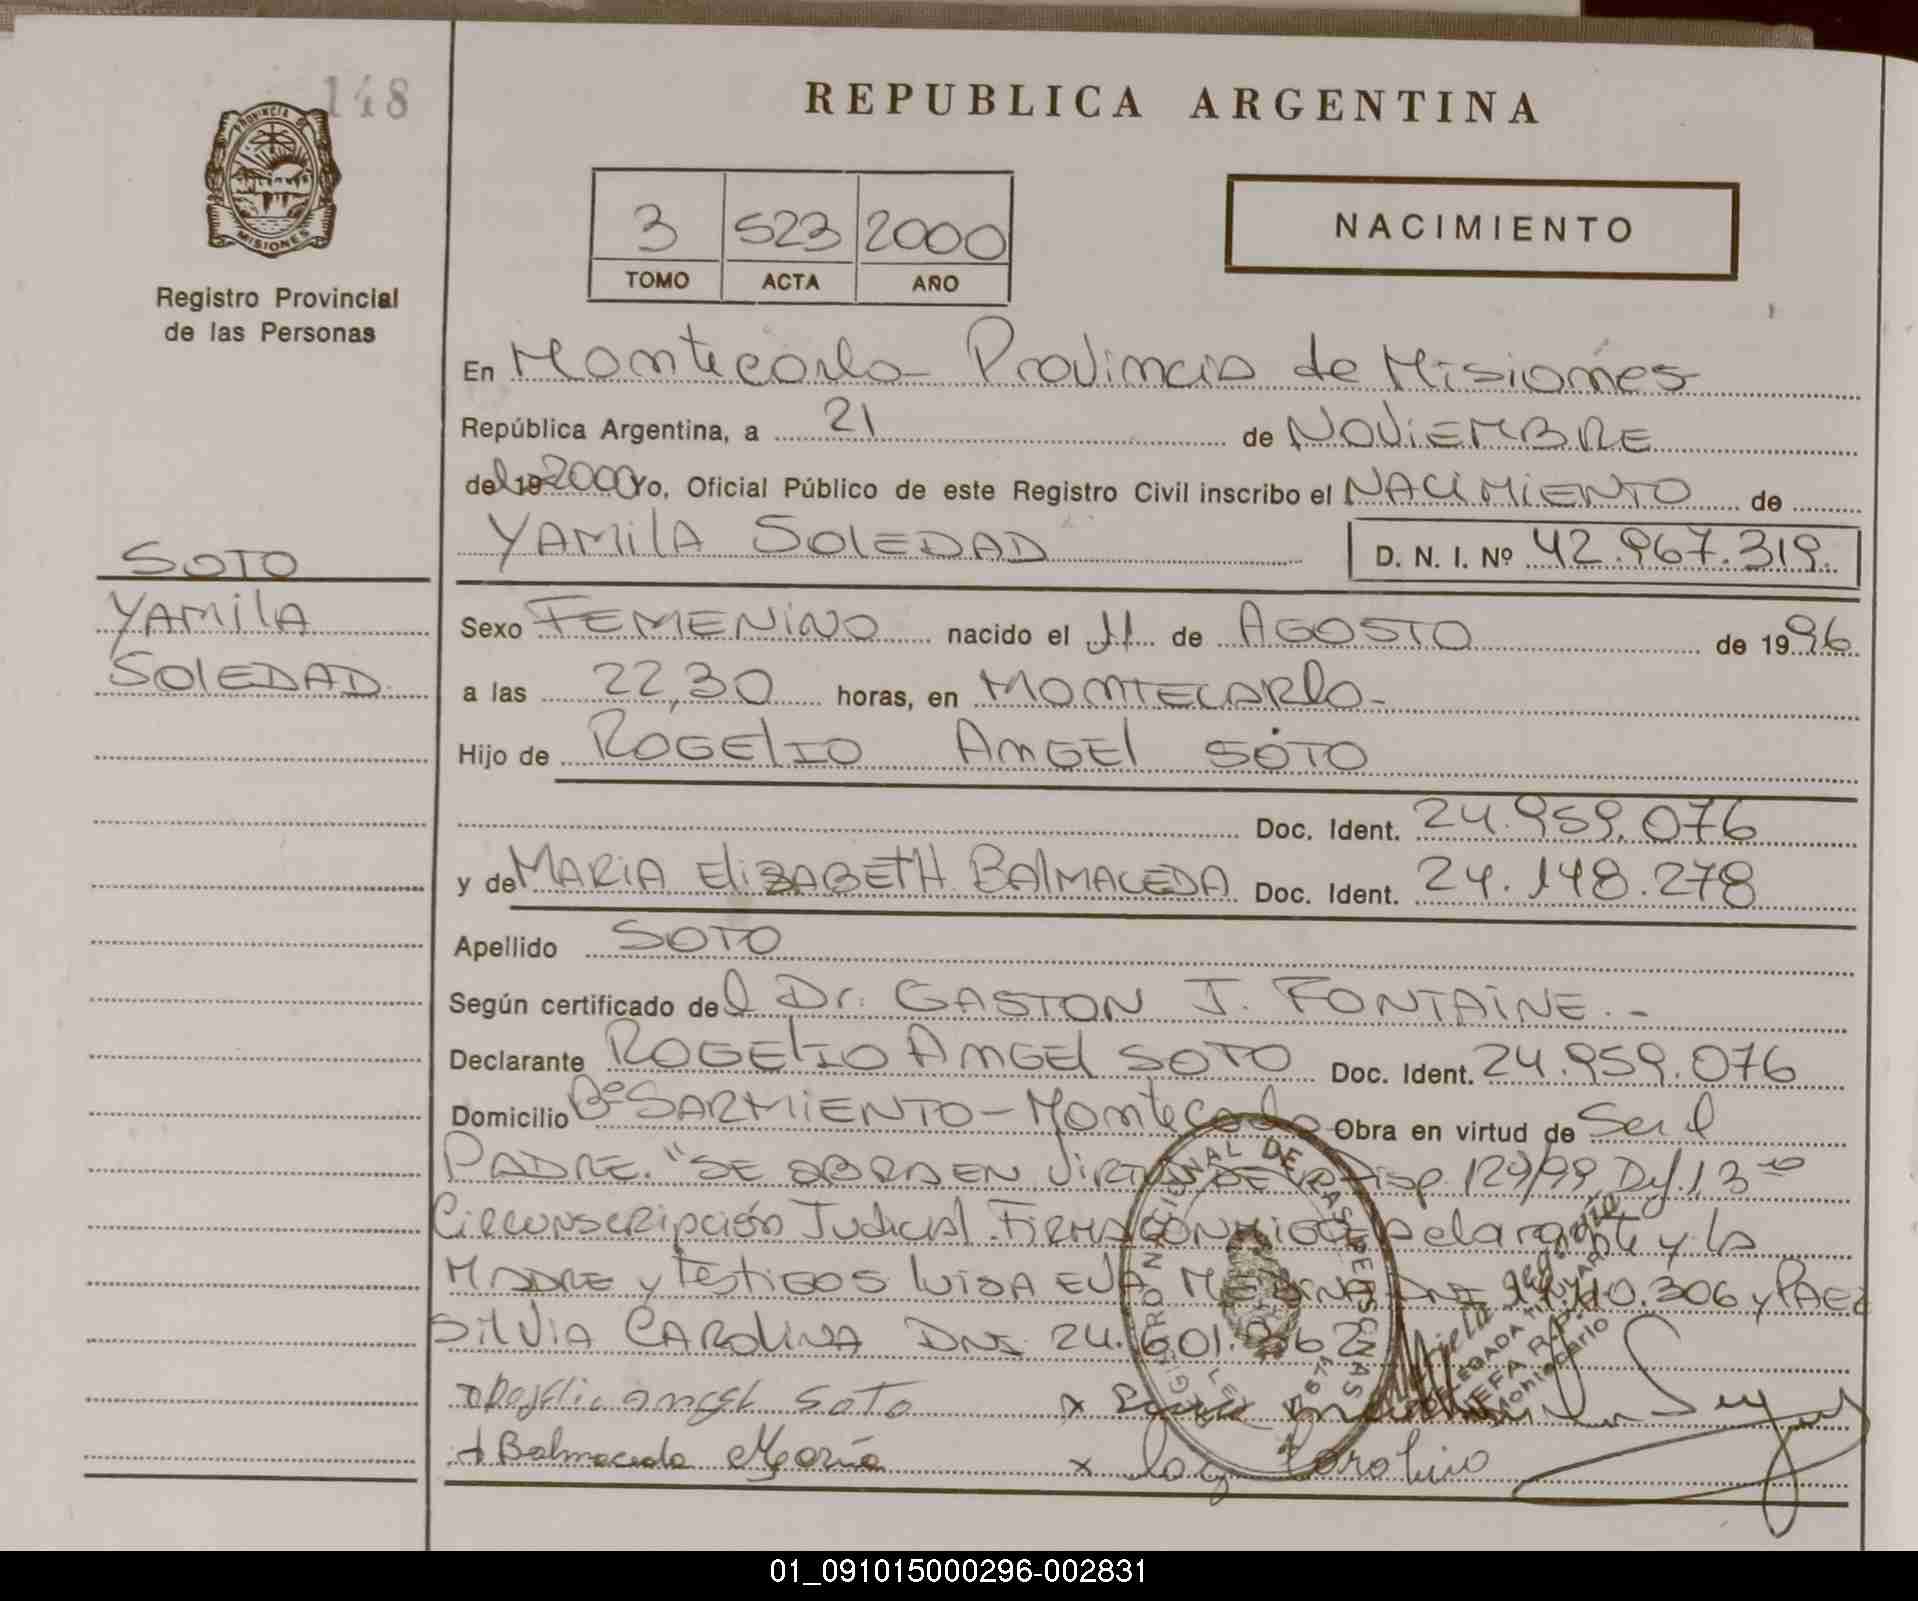 148
PROVINCIA DE
MISIONES
Registro Provincial
de las Personas
REPUBLICA ARGENTINA
3 523 2000
TOMO ACTA AÑO
NACIMIENTO
En Montecarlo - Provincia de Misiones
República Argentina, a 21 de NOVIEMBRE
del 19 2000 Yo, Oficial Público de este Registro Civil inscribo el NACIMIENTO de
YAMILA SOLEDAD D. N. I. Nº 42.967.319.
SOTO
YAMILA
SOLEDAD
Sexo FEMENINO nacido el 11 de AGOSTO de 1996
a las 22,30 horas, en MONTECARLO-
Hijo de ROGELIO ANGEL SOTO
Doc. Ident. 24.959.076
y de MARIA ELIZABETH BALMACEDA Doc. Ident. 24.148.278
Apellido SOTO
Según certificado del Dr. GASTON J. FONTAINE.-
Declarante ROGELIO ANGEL SOTO Doc. Ident. 24.959.076
Domicilio Bº SARMIENTO - Montecarlo Obra en virtud de Ser el
PADRE. "SE OBRA EN VIRTUD DE Disp. 129/99, Def. 1, 3
Circunscripción Judicial. FIRMA CONMIGO Declarante y la
MADRE y TESTIGOS LUISA EVA MEDINA DNI .306 y PAEZ
SILVIA CAROLINA DNI 24.601.
Rogelio angel SOTO
Balmaceda María
x Carolina
REGISTRO NACIONAL DE LAS PERSONAS
LEY
DELEGADA TITULAR
JEFA R.P.P.
Montecarlo
01_091015000296-002831